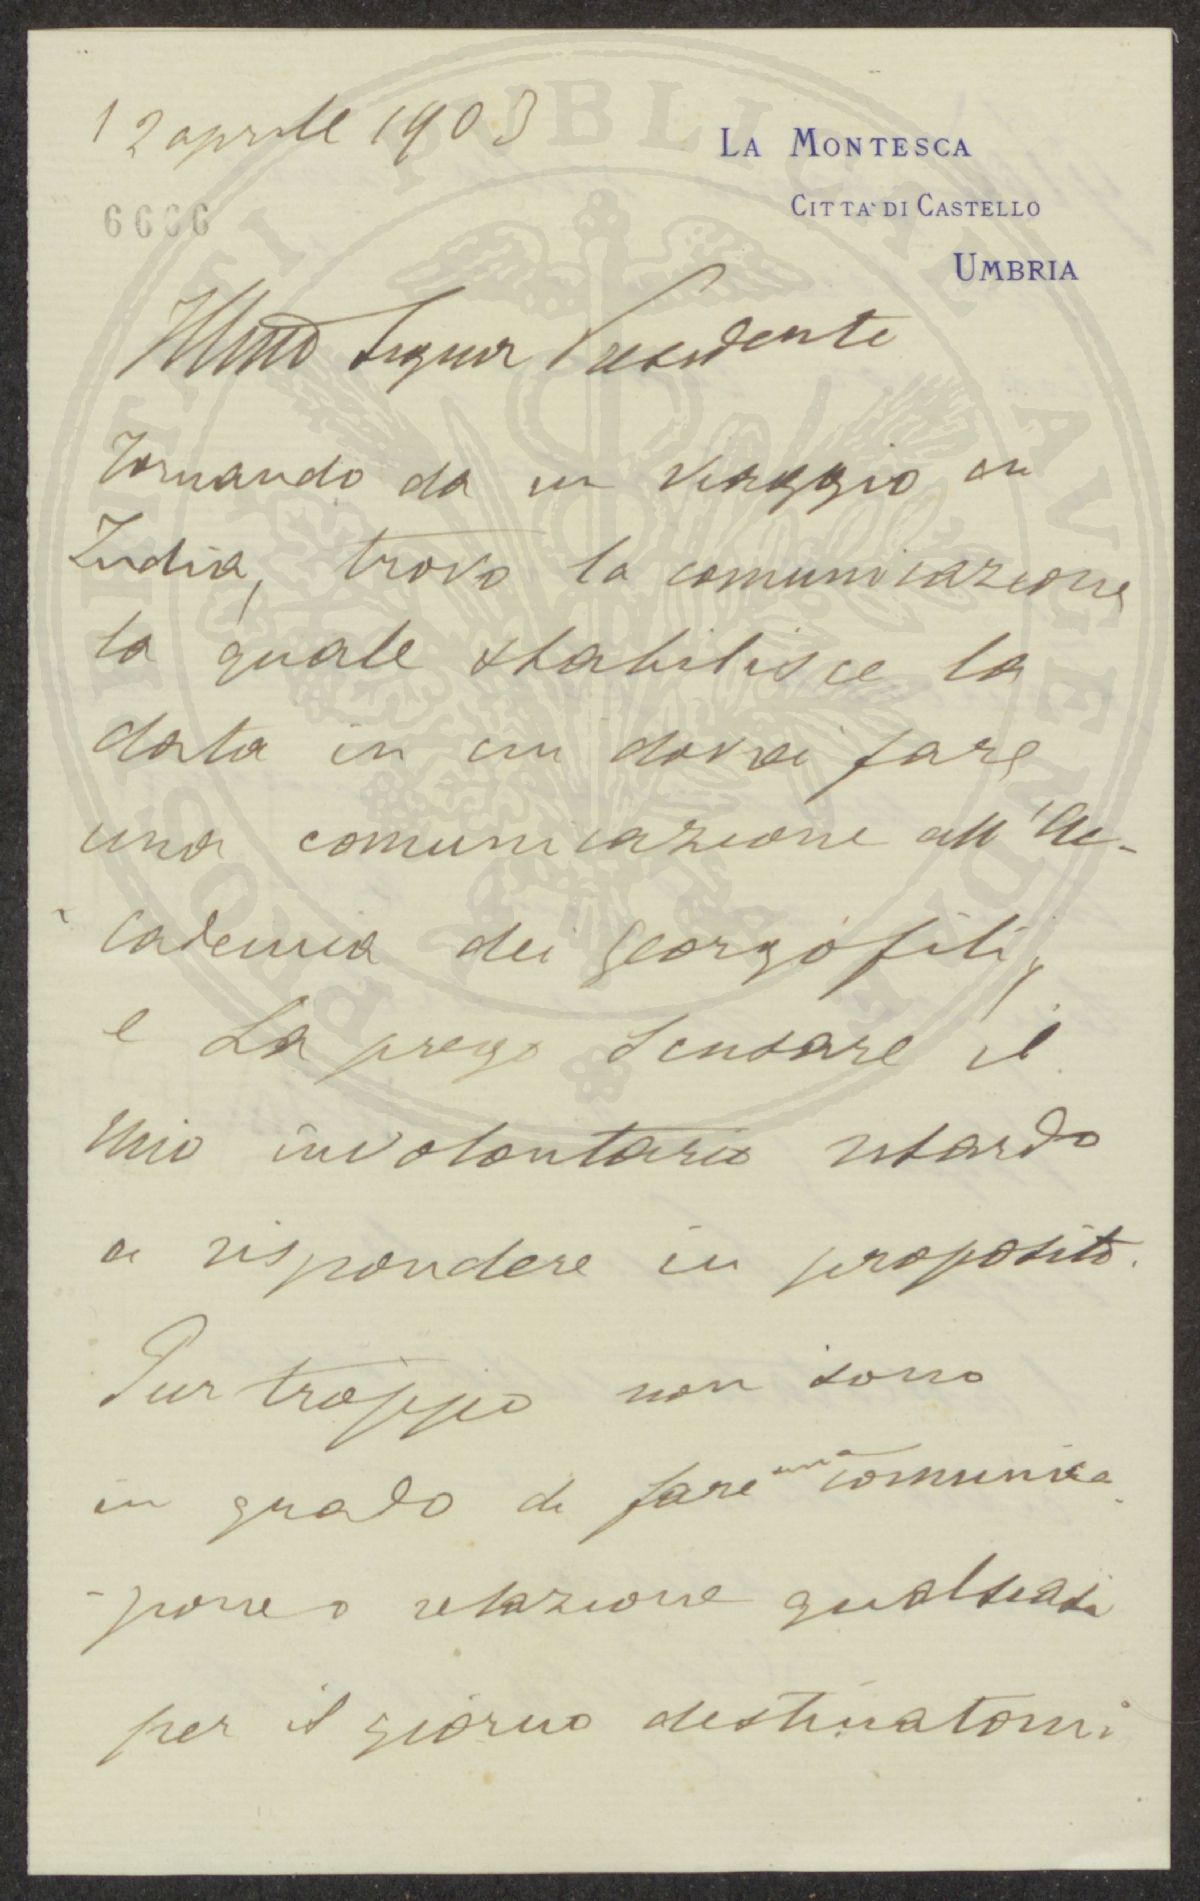 12 aprile 1903
LA MONTESCA
CITTA' DI CASTELLO
UMBRIA
6606
Illmo Signor Presidente
Tornando da un viaggio in
India, trovo la comunicazione
la quale stabilisce la
data in cui dovrei fare
una comunicazione all'Ac-
cademia dei Georgofili,
e La prego scusare il
mio involontario ritardo
a rispondere in proposito.
Pur troppo non sono
in grado di fare una comunica-
-zione o relazione qualsiasi
per il giorno destinatomi
PROSPERITATI PUBLICAE AUGENDAE